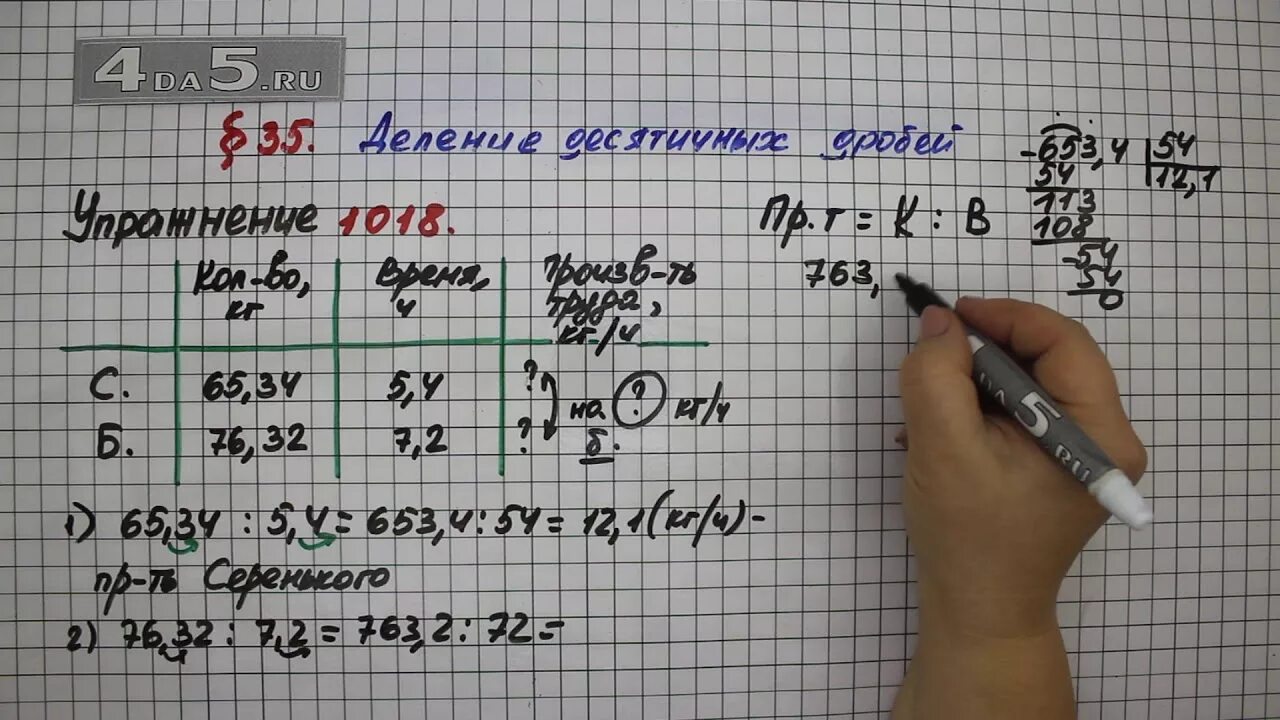 4DA5.RU
§ 35. Деление десятичных дробей
Упражнение 1018.
Кол-во, кг
Время, ч
произв-ть труда, кг/ч
С. 65,34 5,4 ?
Б. 76,32 7,2 ?
на ? кг/ч
б.
1) 65,34 : 5,4 = 653,4 : 54 = 12,1 (кг/ч) -
пр-ть Серенького
2) 76,32 : 7,2 = 763,2 : 72 =
Пр.т = К : В
763,
-653,4 54
54 12,1
113
108
-54
54
0
DA5.RU